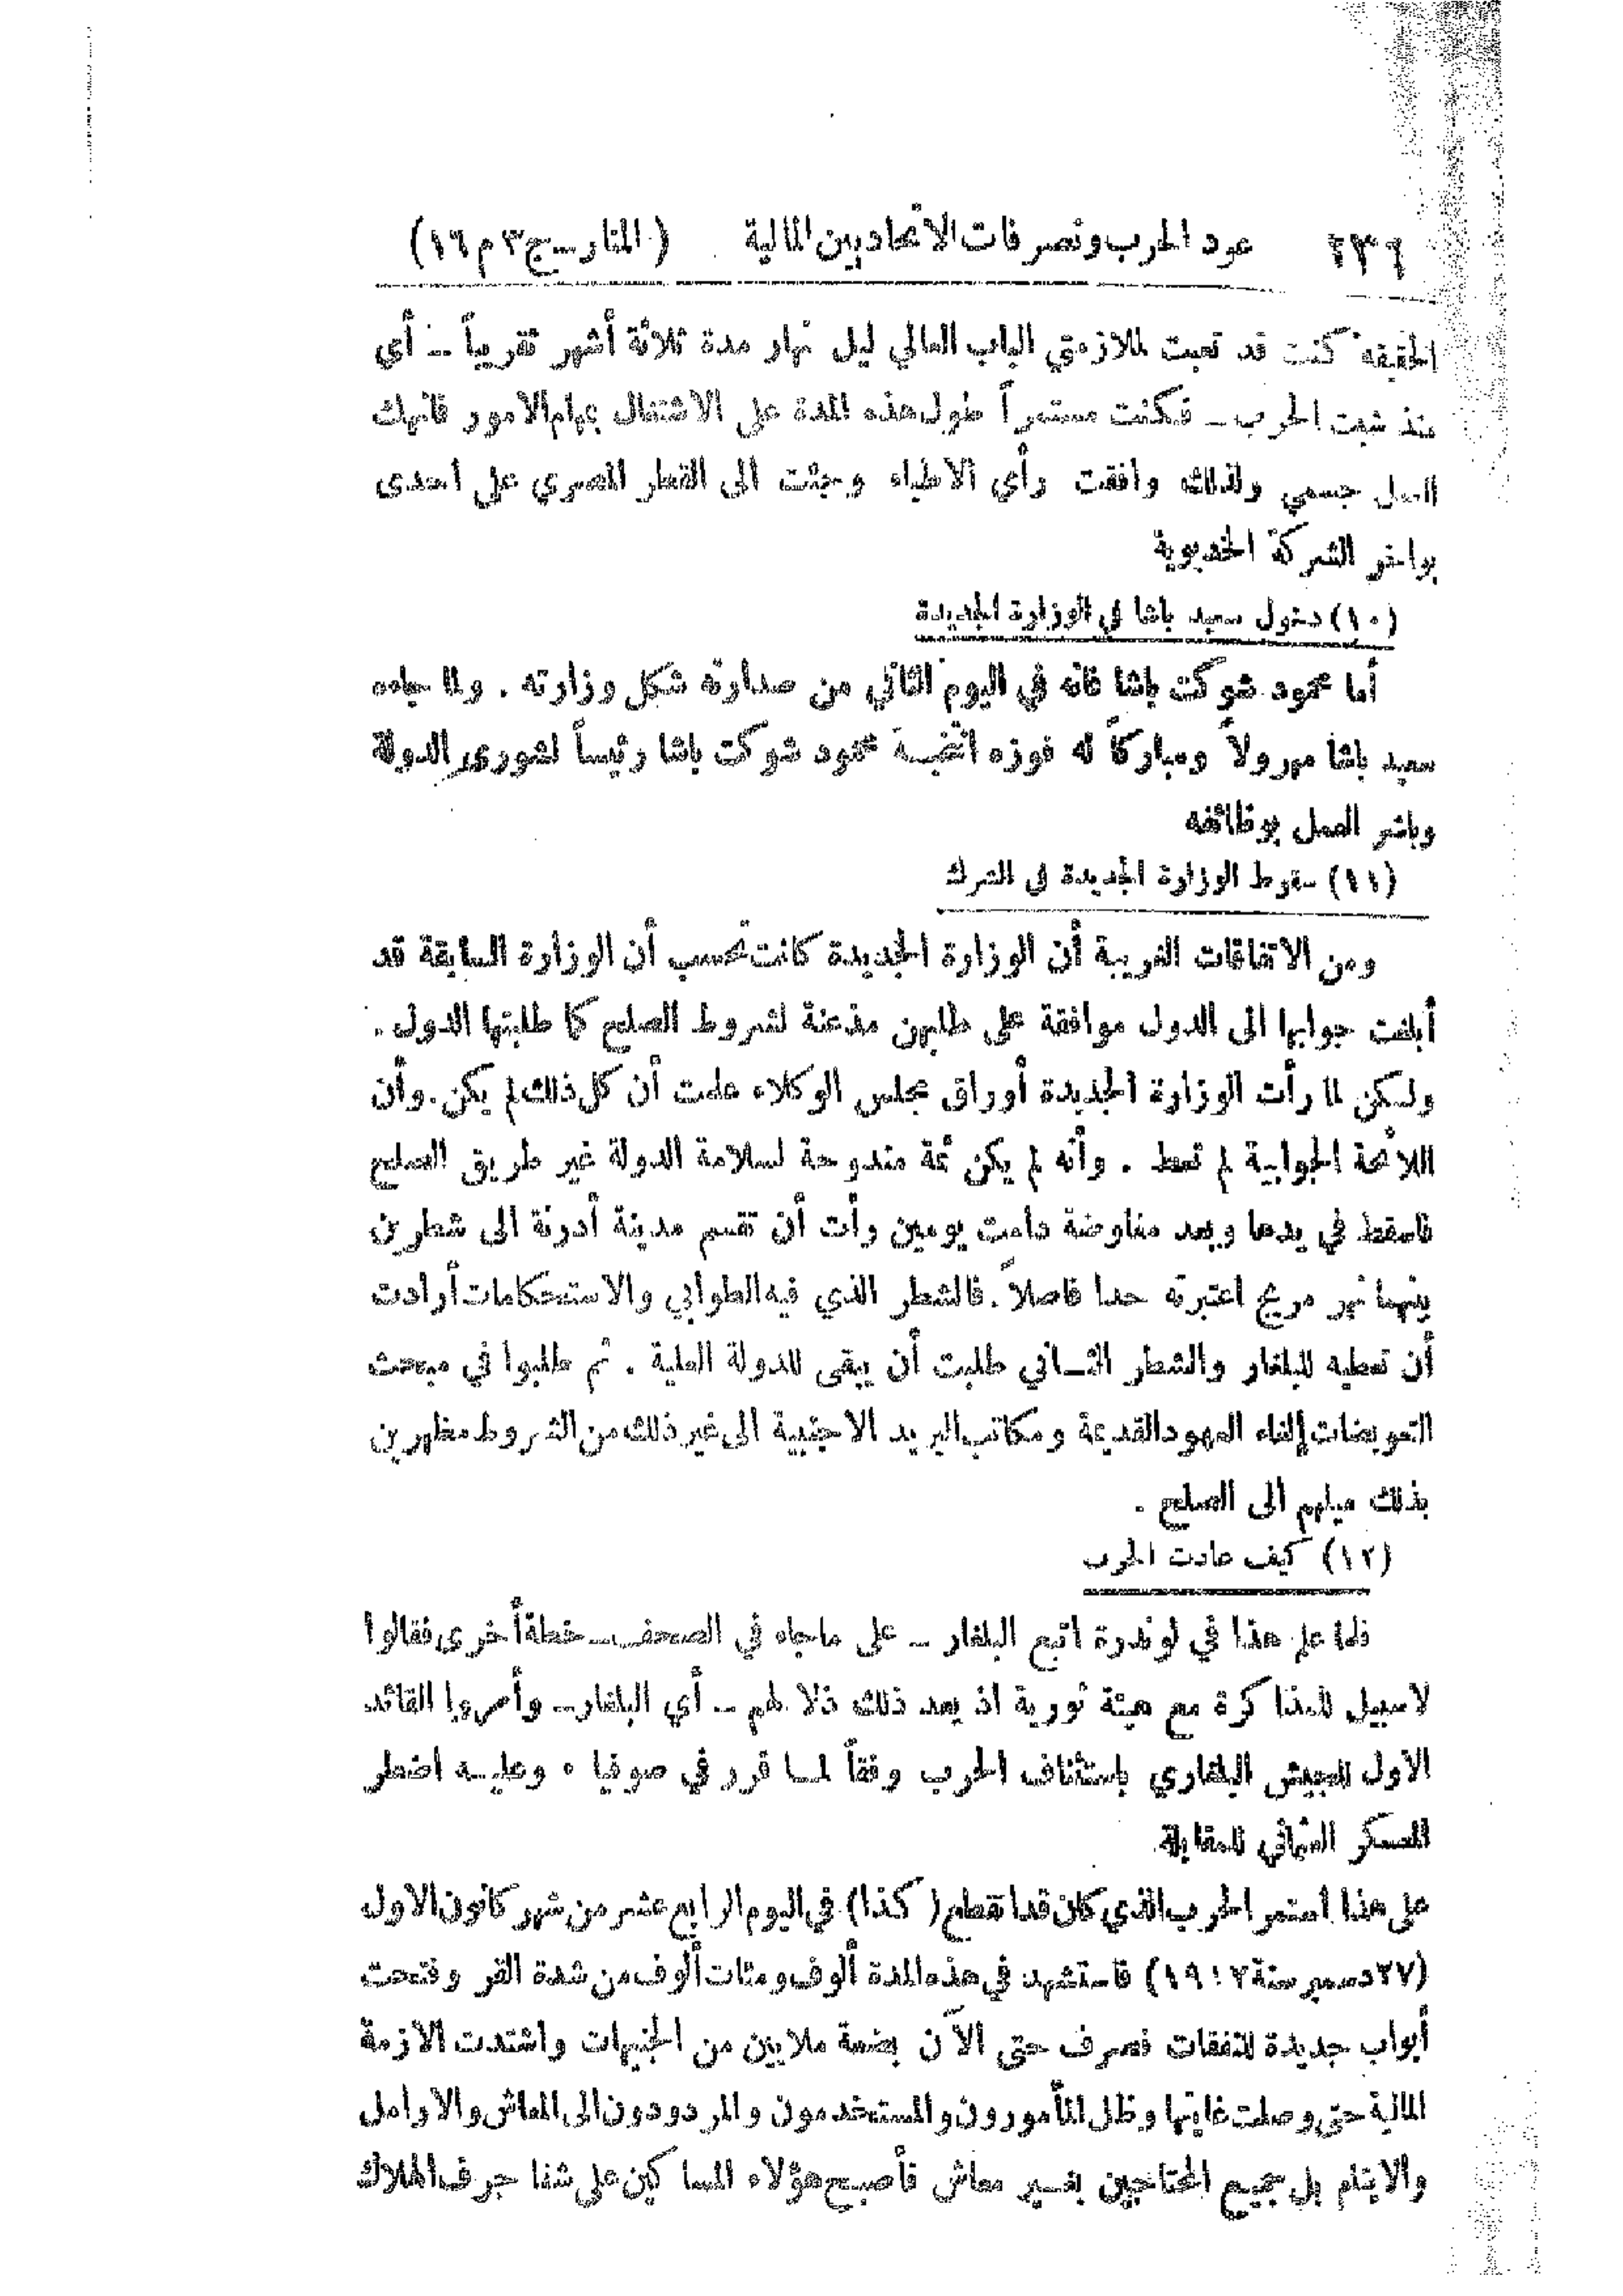 ٢٣٦ عود الحرب وتصرفات الاتحاديين المالية (المنار ـ ج ٣ م ١٦)
الحقيقة كنت قد تعبت لملازمتي الباب العالي ليل نهار مدة ثلاثة أشهر تقريباً ــ أي
منذ شبت الحرب ــ فكنت مستمراً طول هذه المدة على الاشتغال بمهام الامور فانهك
العمل جسمي ولذلك وافقت رأي الاطباء وجئت الى القطر المصري على احدى
بواخر الشركة الخديوية
(١٠) دخول سعيد باشا في الوزارة الجديدة
أما محمود شوكت باشا فانه في اليوم الثاني من صدارته شكل وزارته . ولما جاءه
سعيد باشا مهرولاً ومباركاً له فوزه انتخبه محمود شوكت باشا رئيساً لشورى الدولة
وباشر العمل بوظائفه
(١١) سقوط الوزارة الجديدة في الشرك
ومن الاتفاقات الغريبة أن الوزارة الجديدة كانت تحسب أن الوزارة السابقة قد
أبلغت جوابها الى الدول موافقة على طلبهن مذعنة لشروط الصلح كما طلبتها الدول .
ولكن لما رأت الوزارة الجديدة أوراق مجلس الوكلاء علمت أن كل ذلك لم يكن . وأن
اللائحة الجوابية لم تعط . وأنه لم يكن ثمة مندوحة لسلامة الدولة غير طريق الصلح
فاسقط في يدها وبعد مفاوضة دامت يومين رأت أن تقسم مدينة أدرنة الى شطرين
بينهما نهر مريج اعتبرته حدا فاصلاً . فالشطر الذي فيه الطوابي والاستحكامات أرادت
أن تعطيه للبلغار والشطر الثـاني طلبت أن يبقى للدولة العلية . ثم طلبوا في مبحث
التعويضات إلغاء العهود القديمة ومكاتب البريد الاجنبية الى غير ذلك من الشروط مظهرين
بذلك ميلهم الى الصلح .
(١٢) كيف عادت الحرب
فلما علم هذا في لوندرة اتبع البلغار ــ على ماجاء في الصحف ــ خطة أخرى فقالوا
لا سبيل للمذاكرة مع هيئة ثورية اذ يعد ذلك ذلا لهم ــ أي البلغار ــ وأمروا القائد
الاول للجيش البلغاري باستئناف الحرب وفقاً لمـا قرر في صوفيا ٠ وعليـه اضطر
العسكر العثماني للمقابلة
على هذا استمر الحرب الذي كان قد انقطع (كذا) في اليوم الرابع عشر من شهر كانون الاول
(٢٧ دسمبر سنة ١٩١٢) فاستشهد في هذه المدة ألوف ومئات ألوف من شدة القر وفتحت
أبواب جديدة للنفقات فصرف حتى الآن بضعة ملايين من الجنيهات واشتدت الازمة
المالية حتى وصلت غايتها وظل المأمورون والمستخدمون والمردودون الى المعاش والارامل
والايتام بل جميع المحتاجين بغـير معاش فأصبح هؤلاء المساكين على شفا جرف الهلاك